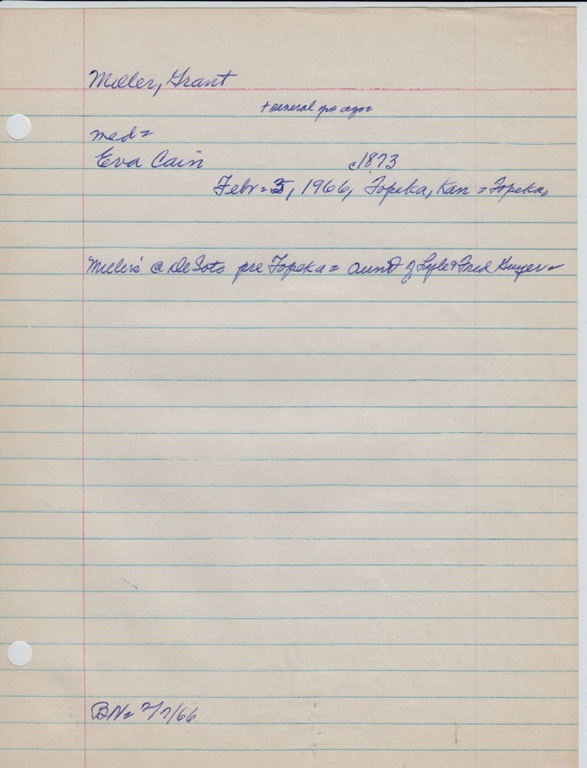 Miller, Grant
+ several yrs ago=
md=
Eva Cain c1873
Febr. 5, 1966, Topeka, Kan = Topeka.
Miller's @ DeSoto pre Topeka = aunt of Lyle & Fred Guyer
BN= 2/7/66